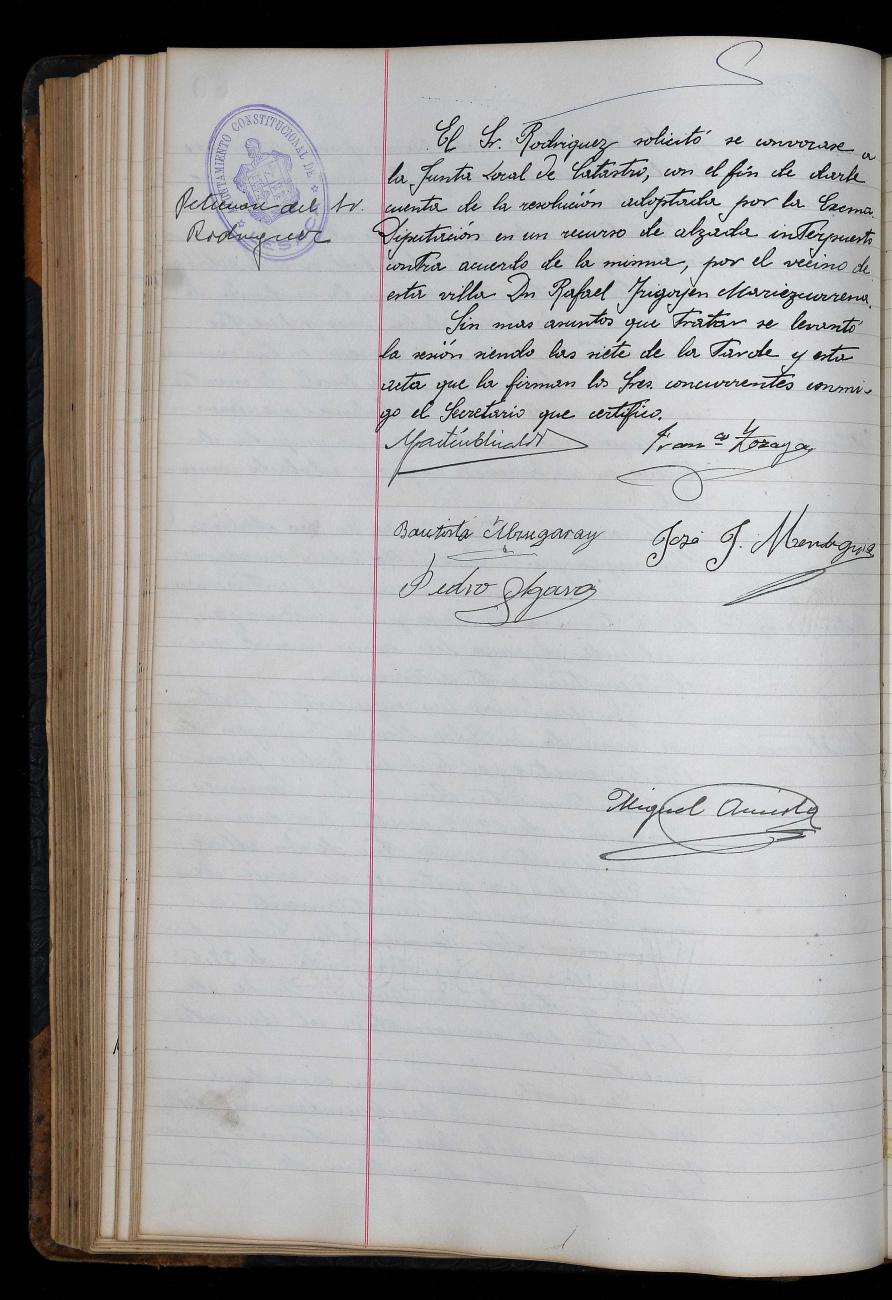 AYUNTAMIENTO CONSTITUCIONAL DE
Peticion del Sr.
Rodriguez
El Sr. Rodriguez solicitó se convocase a
la Junta Local de Catastro, con el fin de darle
cuenta de la resolución adoptada por la Excma.
Diputación en un recurso de alzada interpuesto
contra acuerdo de la misma, por el vecino de
esta villa Dn Rafael Irigoyen Mariezcurrena.
Sin mas asuntos que tratar se levantó
la sesión siendo las siete de la tarde y esta
acta que la firman los Sres. concurrentes conmi-
go el Secretario que certifico.
Martin Franco Zozaya
Bautista José J. Mendeguia
Pedro
Miguel